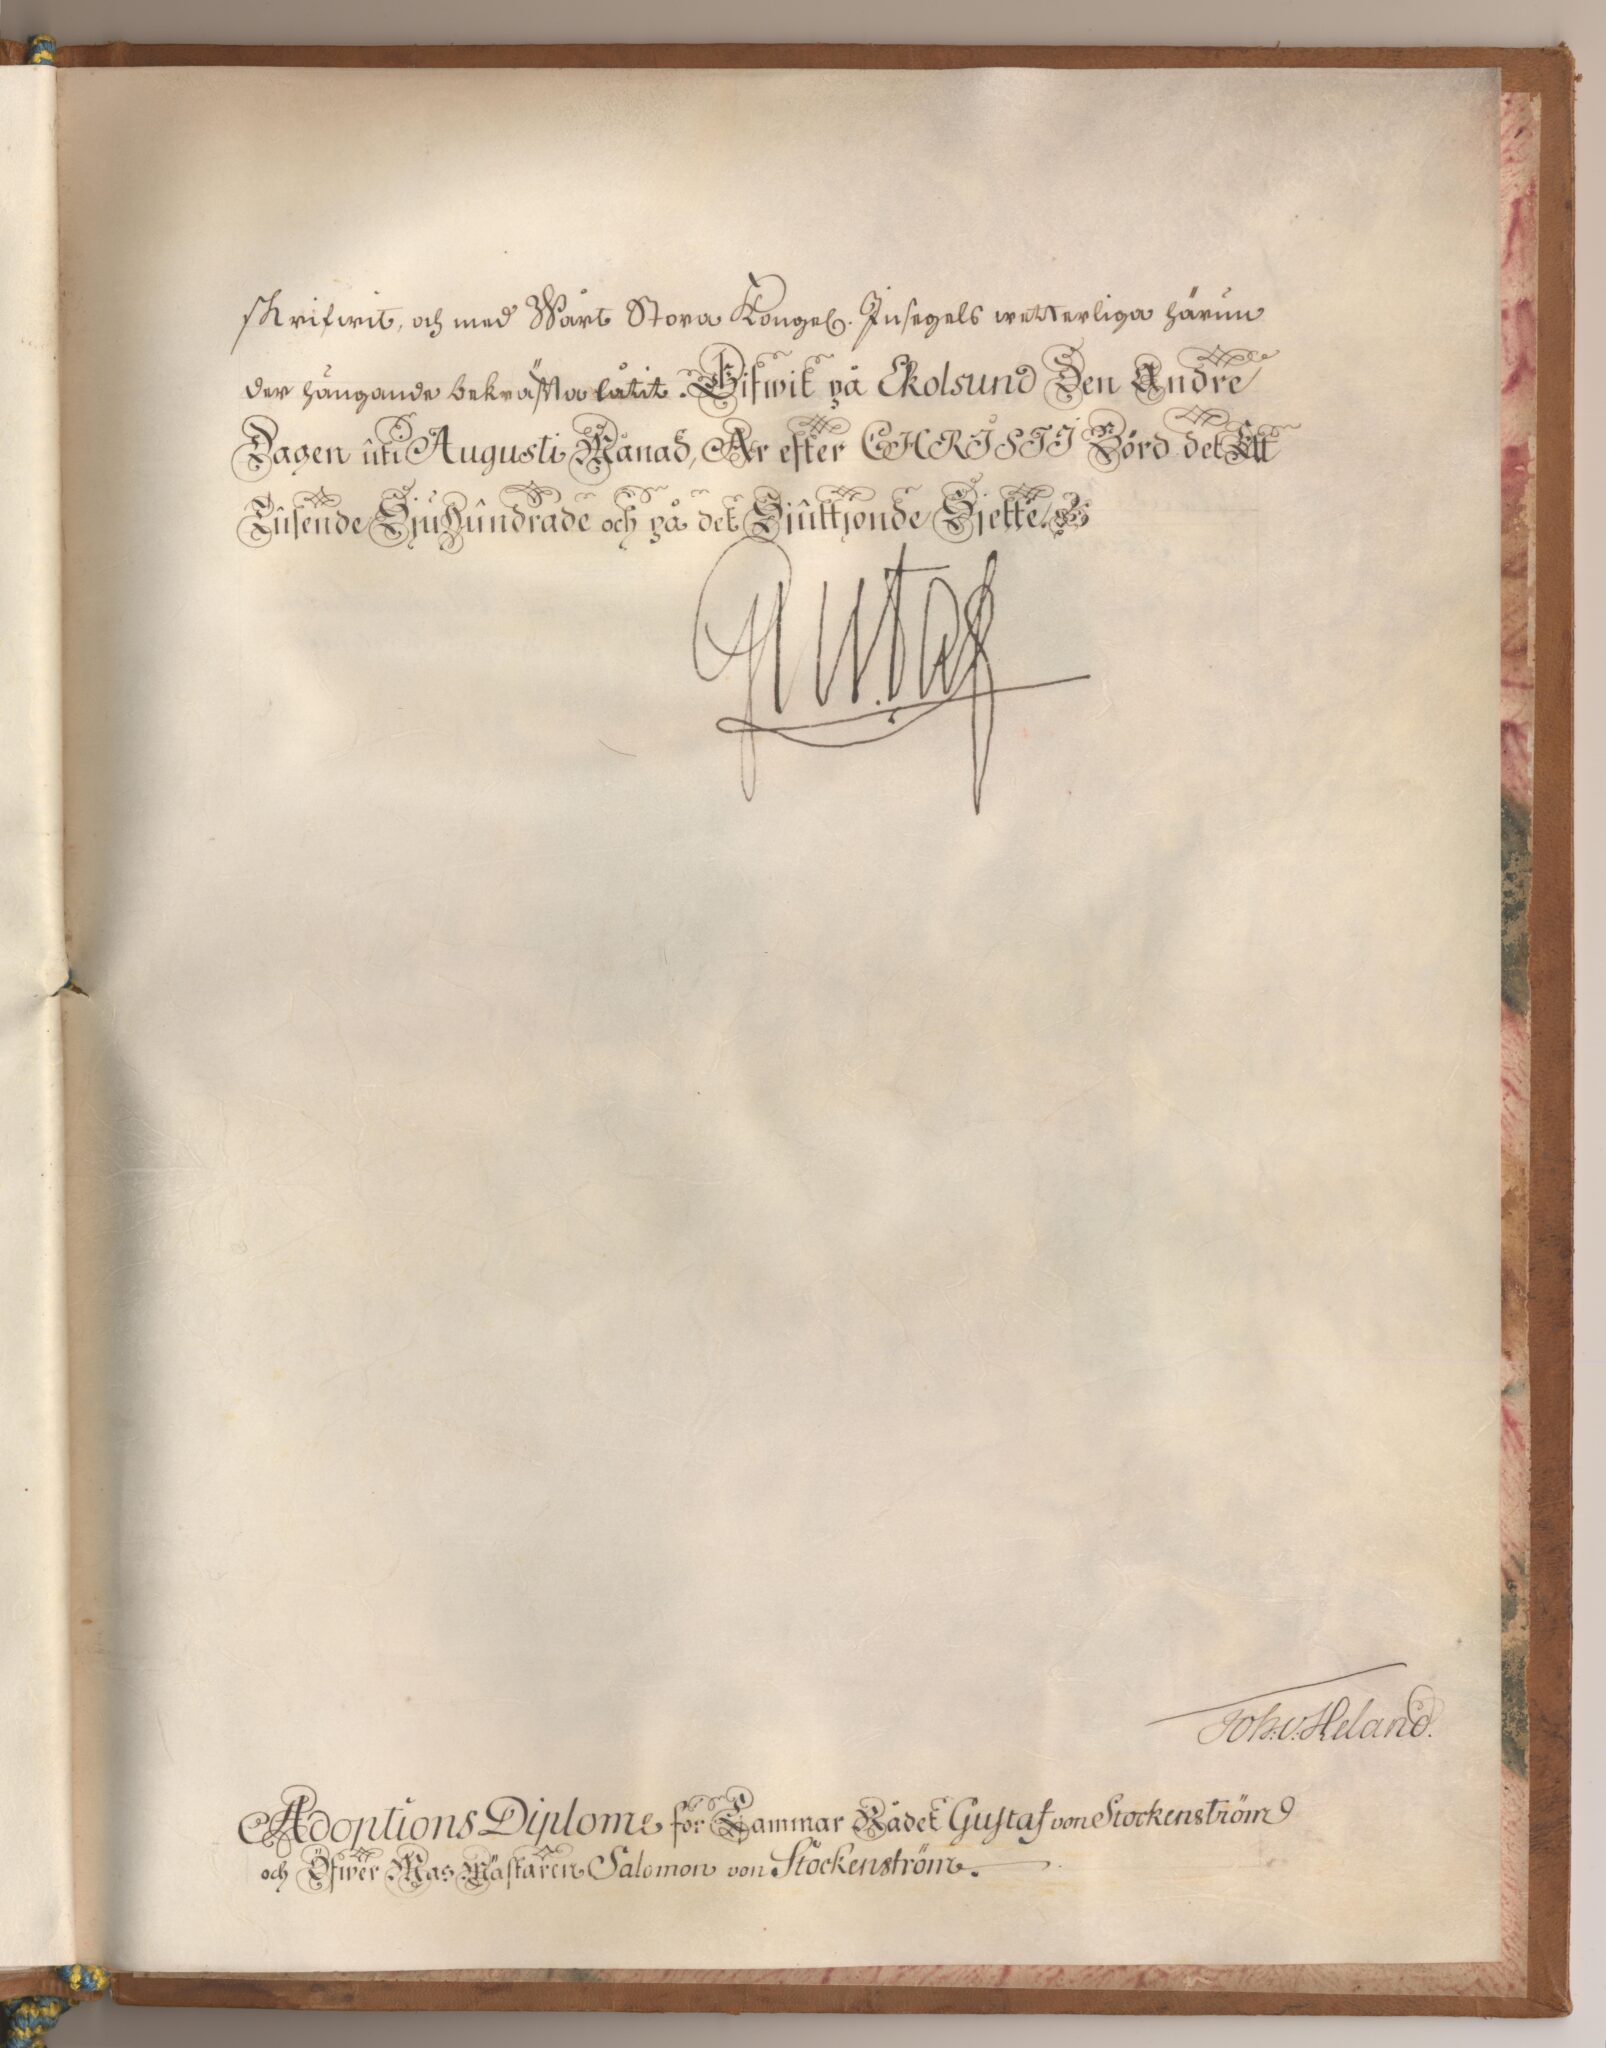 skrifwit, och med Wårt Stora Kongel. Insegels wetterliga härun
der hängande bekräfta låtit. Gifwit på Ekolsund Den Andre
Dagen uti Augusti Månad, År efter CHRISTI Börd det Ett
Tusende Sju Hundrade och på det Sjuttjonde Sjette.
Gustaf
Joh. v. Heland.
Adoptions Diplome för Cammar Rådet Gustaf von Stockenström
och Öfwer Mas Mästaren Salomon von Stockenström.